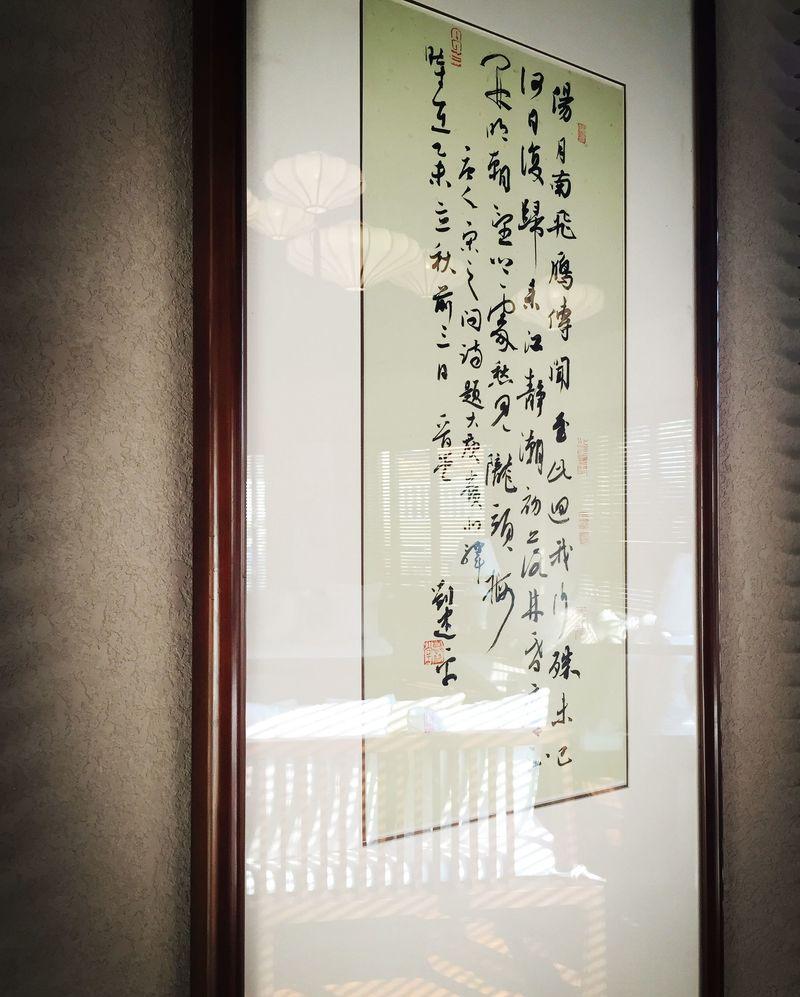 陽月南飛鴈傳聞至此迴我行殊未已
何日復歸來江靜潮初落林昏
開明朝望鄉處愁見隴頭梅
唐人宋之問詩題大庾嶺北驛
時在乙未立秋前三日 劉建平